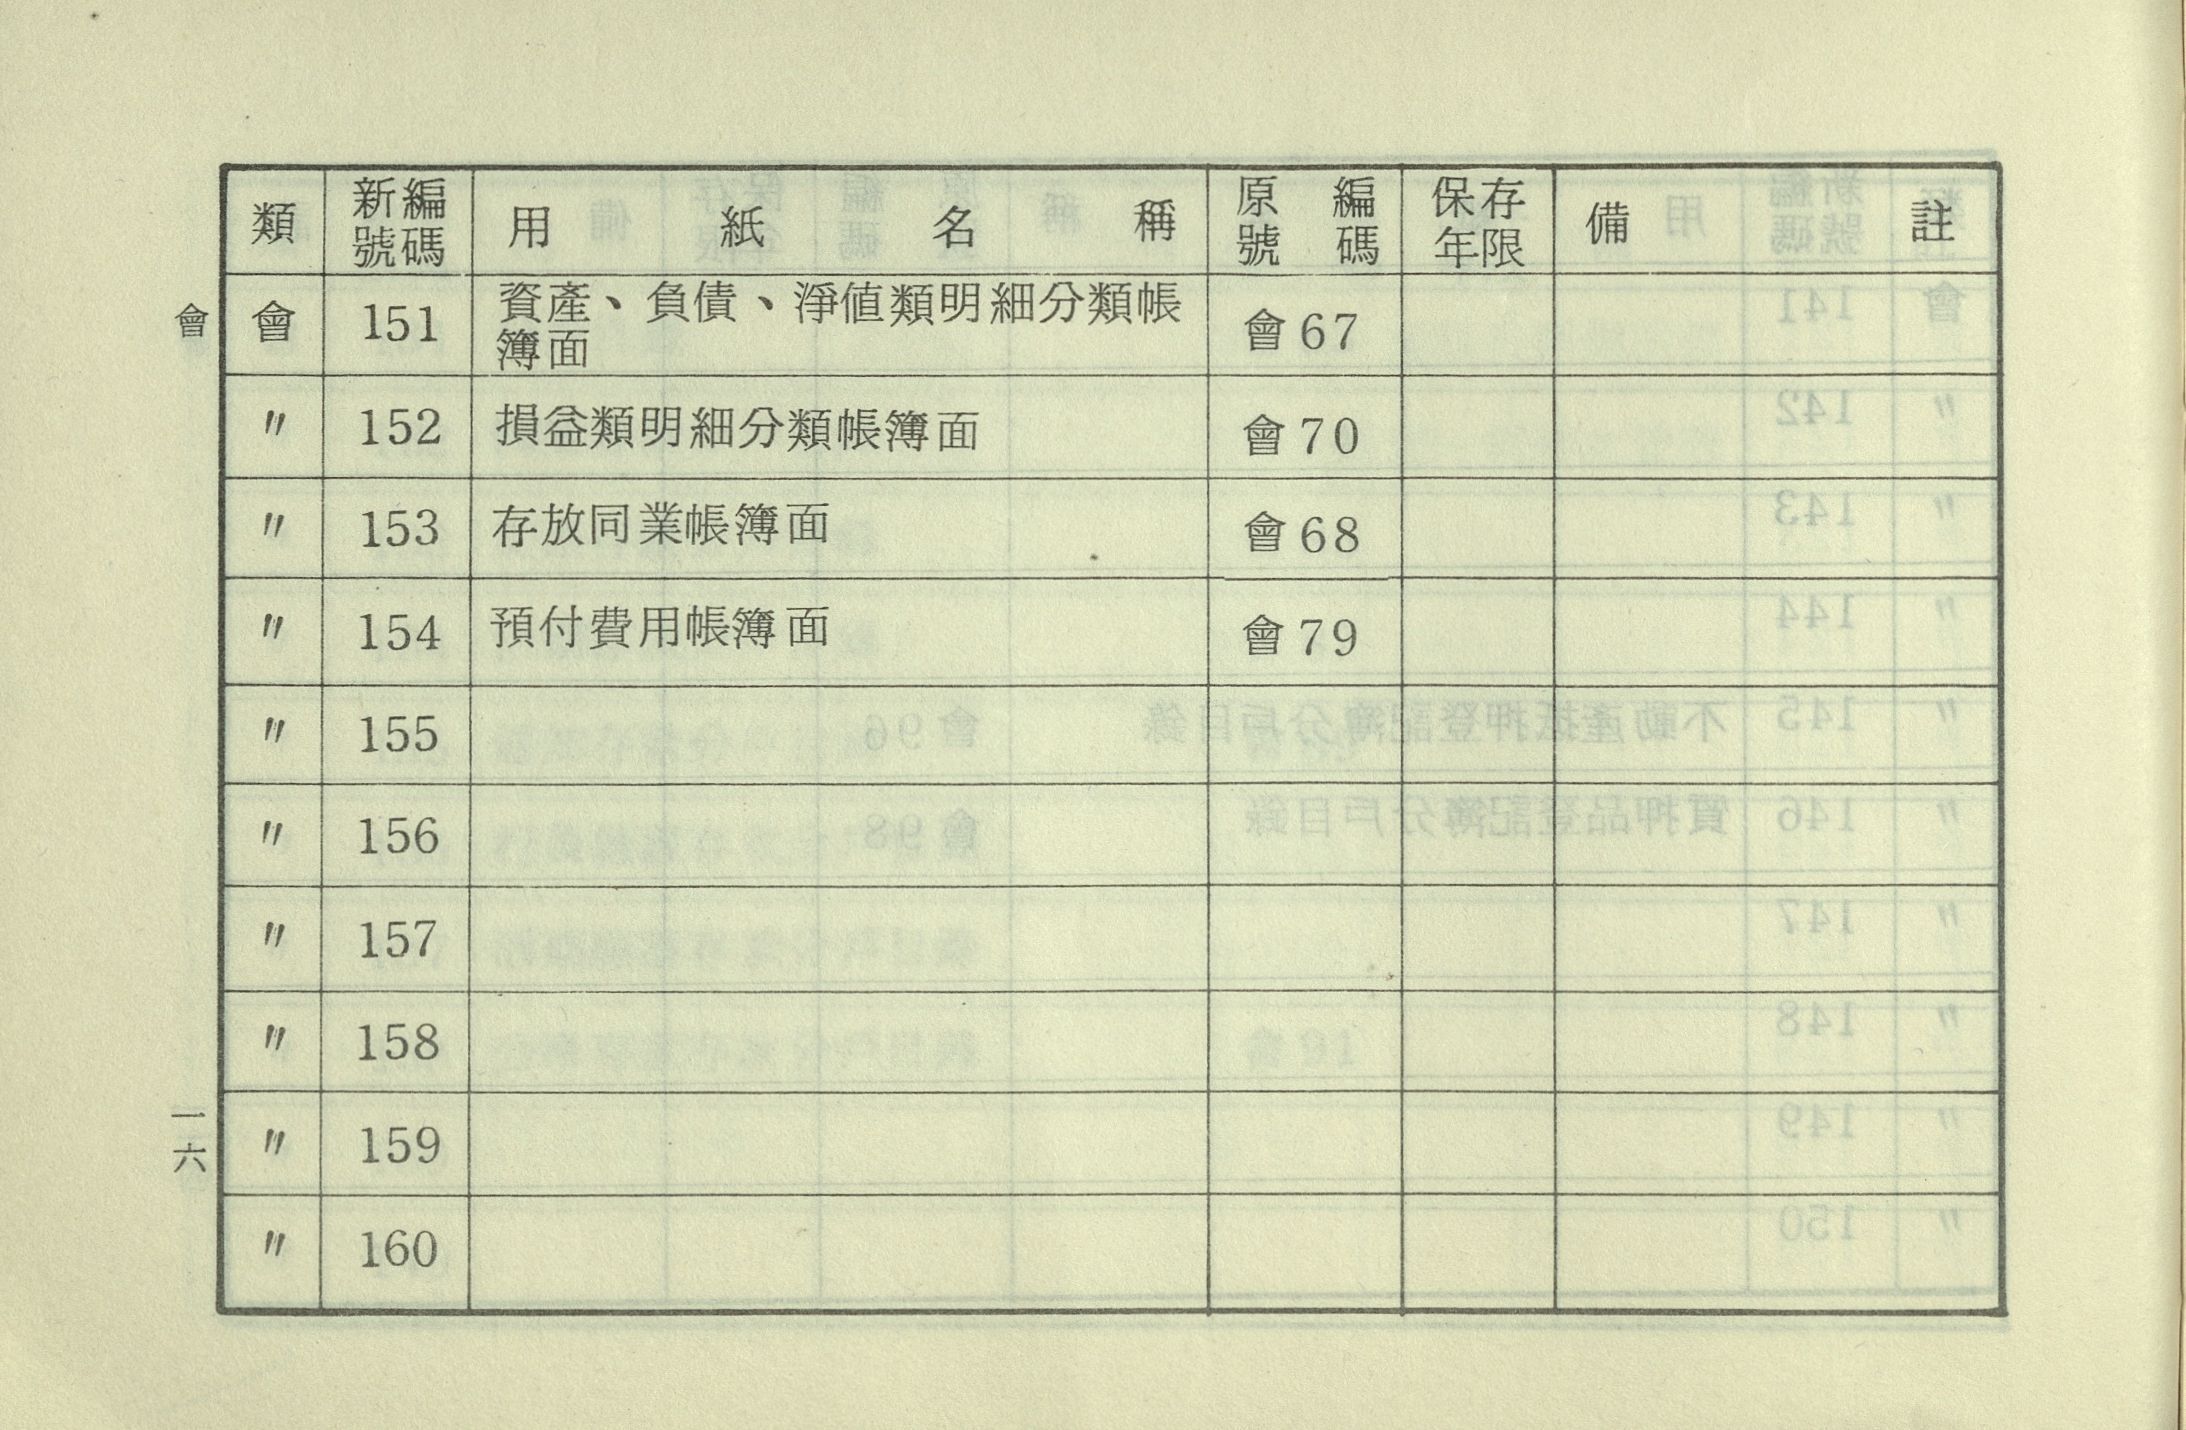 類 新編號碼 用紙名稱 原編號碼 保存年限 備註
會 會 151 資產、負債、淨值類明細分類帳
簿面 會67
〃 152 損益類明細分類帳簿面 會70
〃 153 存放同業帳簿面 會68
〃 154 預付費用帳簿面 會79
〃 155
〃 156
〃 157
〃 158
〃 159
〃 160
一六